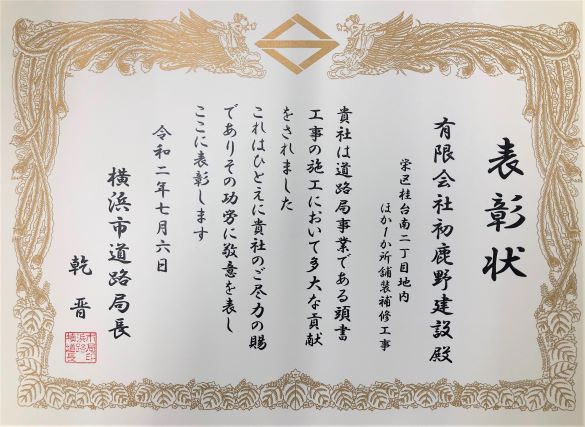 表彰状
有限会社初鹿野建設殿
栄区桂台南二丁目地内
ほか1か所舗装補修工事
貴社は道路局事業である頭書
工事の施工において多大な貢献
をされました
これはひとえに貴社のご尽力の賜
でありその功労に敬意を表し
ここに表彰します
令和二年七月六日
横浜市道路局長
乾晋